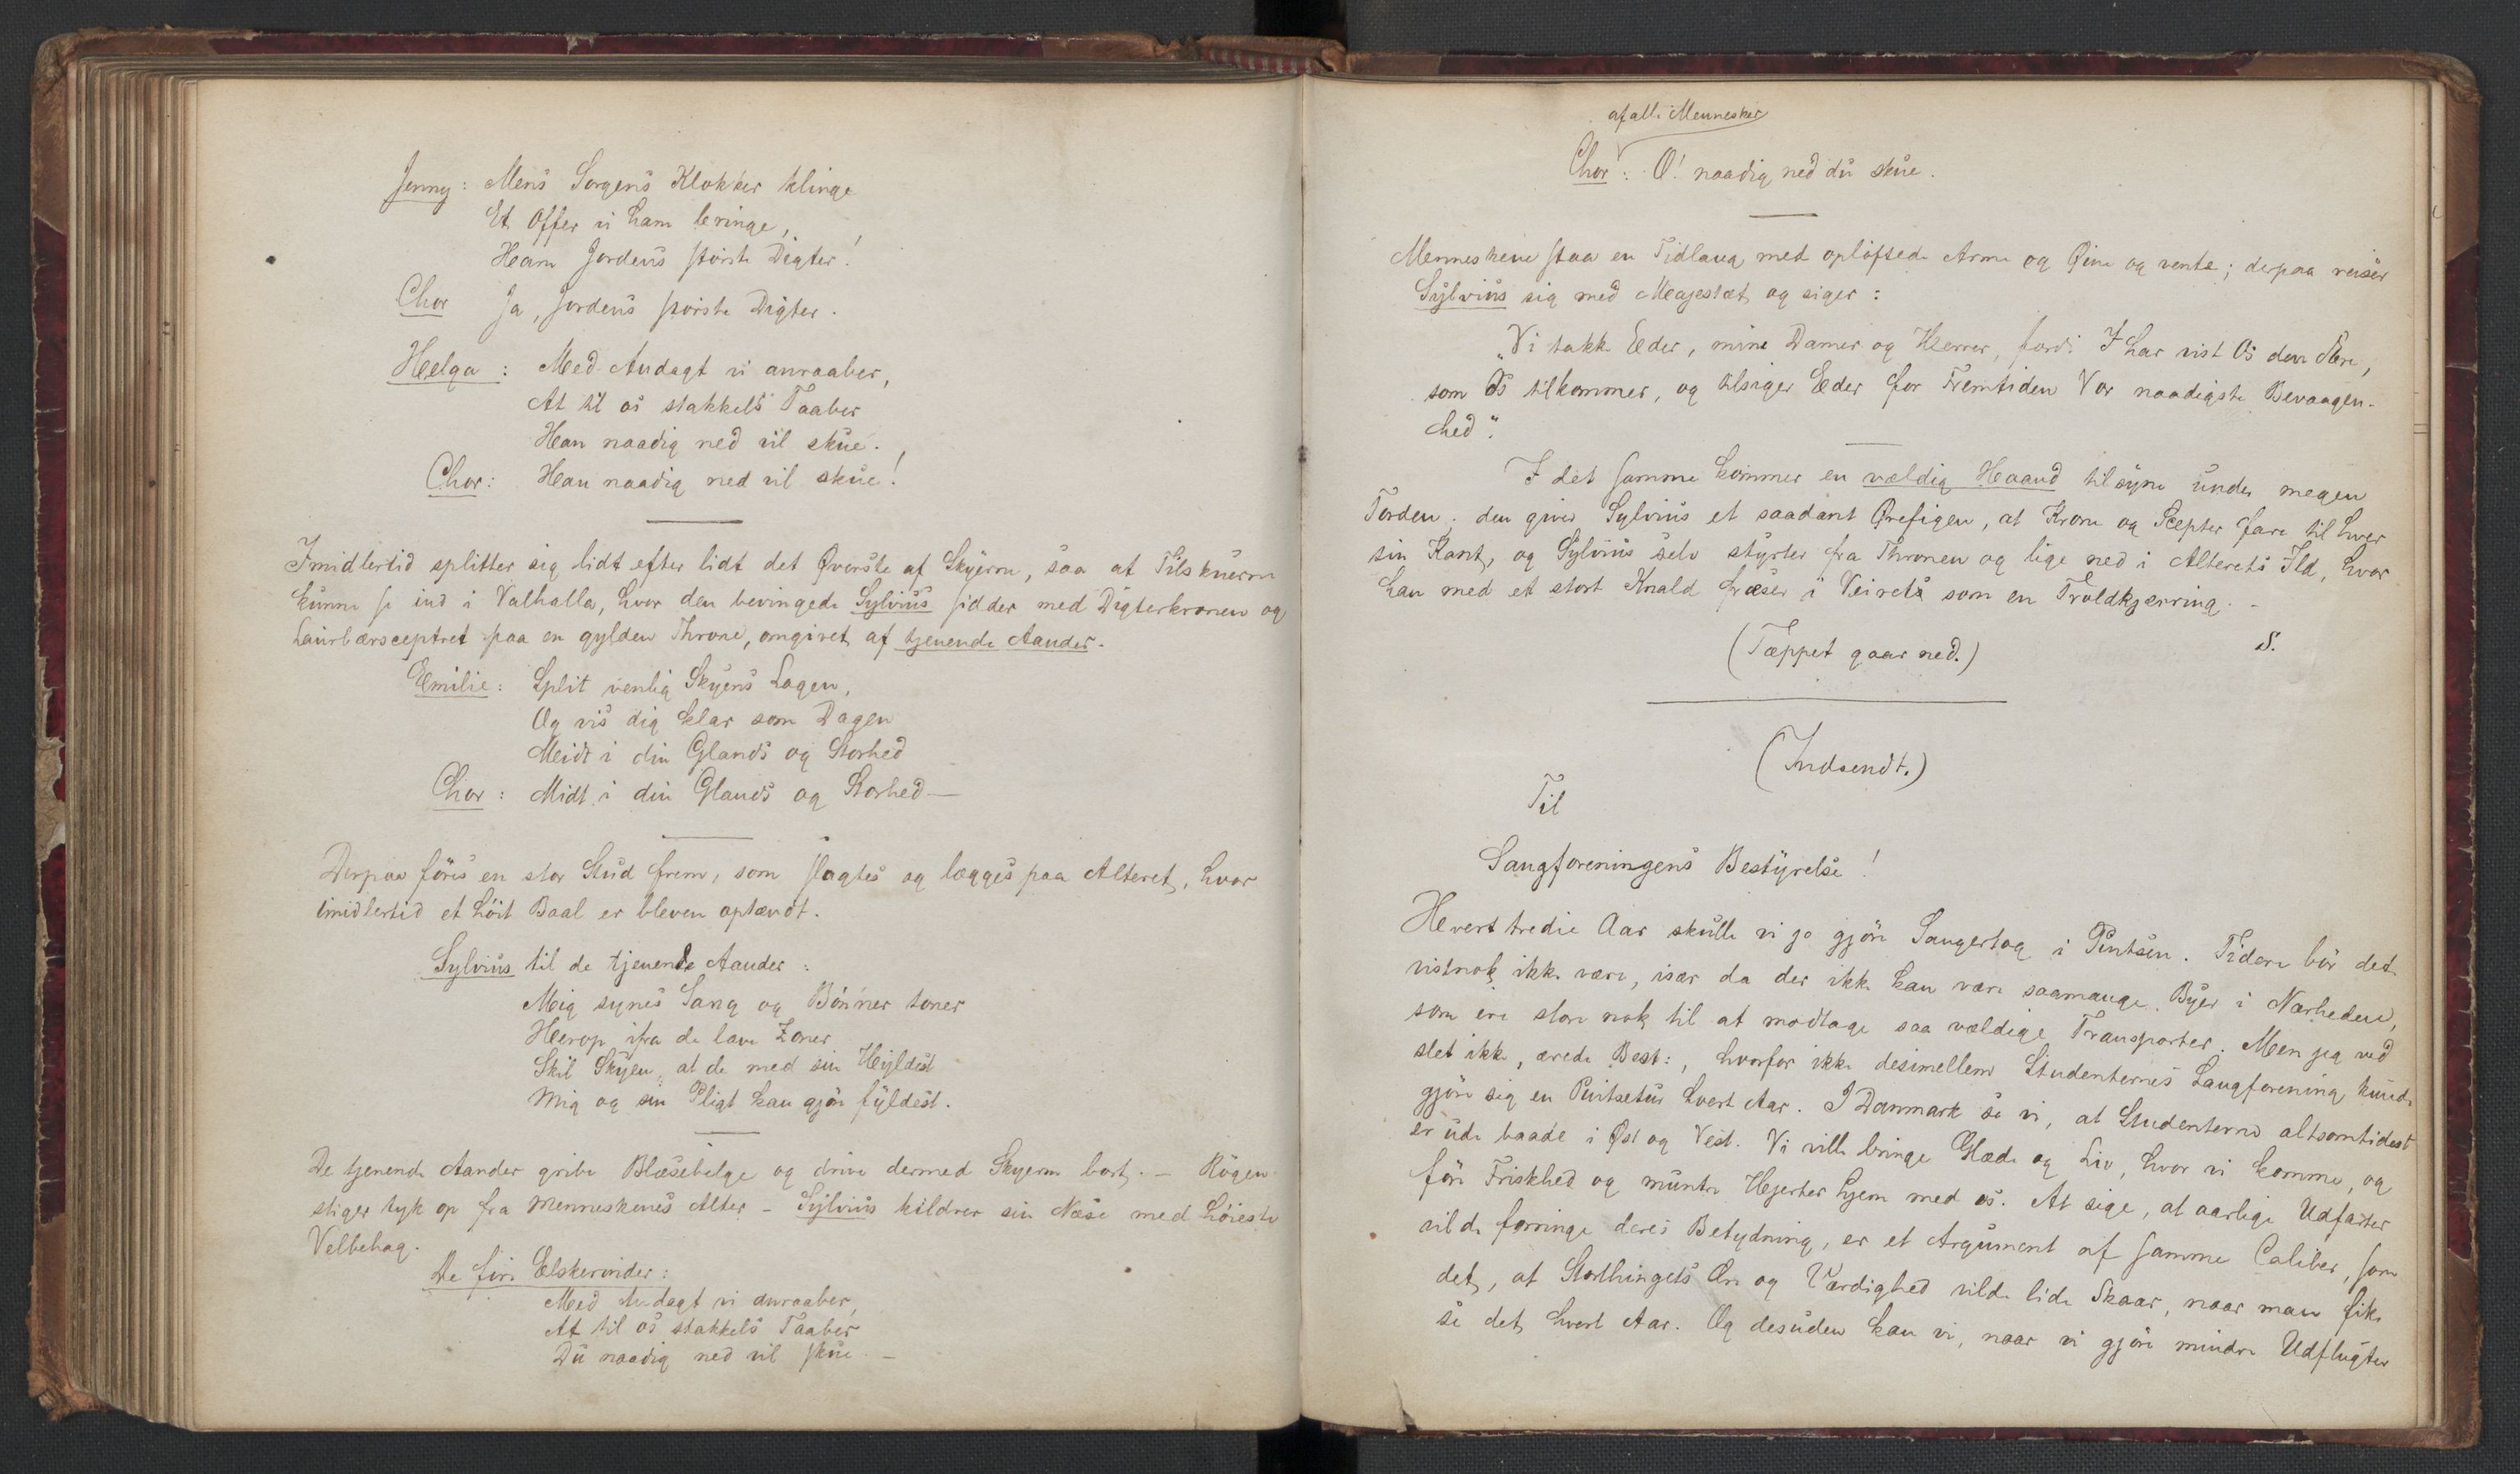 Jenny: Mens Sorgens Klokker klinge
Et Offer vi ham bringe,
Ham Jordens störste Digter!
Chor Ja, Jordens störste Digter.
Helga: Med Andagt vi anraaber,
At til os stakkels Taaber
Han naadig ned vil skue.
Chor: Han naadig ned vil skue!
Imidlertid splitter sig lidt efter lidt det Øverste af Skyerne, saa at Tilskuerne
kunne se ind i Valhalla, hvor den bevingede Sylvius sidder med Digterkronen og
Laurbærsceptret paa en gylden Throne, omgivet af tjenende Aander.
Emilie: Split venlig Skyens Lagen,
Og vis dig klar som Dagen
Midt i din Glands og Storhed
Chor: Midt i din Glands og Storhed—
Derpaa föres en stor Stud frem, som slagtes og lægges paa Alteret, hvor
imidlertid et höit Baal er bleven optændt.
Sylvius til de tjenende Aander:
Mig synes Sang og Bönner toner
Herop ifra de lave Zoner
Skil Skyen, at de med sin Hyldest
Mig og sin Pligt kan gjöre fyldest.
De tjenende Aander gribe Blæsebelge og drive dermed Skyerne bort. — Rögen
stiger tyk op fra Menneskenes Alter — Sylvius kildrer sin Næse med höieste
Velbehag.
De fire Elskerinder:
Med Andagt vi anraaber,
At til os stakkels Taaber
Du naadig ned vil skue. —
af alle Mennesker
Chor: O! naadig ned du skue.
Menneskene staa en Tidlang med oplöftede Arme og Öine og vente; derpaa reiser
Sylvius sig med Majestæt og siger:
„Vi takke Eder, mine Damer og Herrer, fordi I har vist Os den Ære,
som Os tilkommer, og tilsiger Eder for Fremtiden Vor naadigste Bevaagen-
hed“.
I det samme kommer en vældig Haand tilsyne under megen
Torden; den giver Sylvius et saadant Ørefigen, at Krone og Scepter fare til hver
sin Kant, og Sylvius selv styrter fra Thronen og lige ned i Alterets Ild, hvor
han med et stort Knald fræser i Veirets som en Troldkjærring. —
(Tæppet gaar ned.) S.
(Indsendt.)
Til
Sangforeningens Bestyrelse!
Hvert tredie Aar skulle vi jo gjöre Sangertog i Pintsen. Tidere bör det
vistnok ikke være, især da der ikke kan være saamange Byer i Nærheden,
som ere store nok til at modtage saa vældige Transporter. Men jeg ved
slet ikke, ærede Best:, hvorfor ikke desimellem Studenternes Sangforening kunde
gjöre sig en Pintsetur hvert Aar. I Danmark se vi, at Studenterne altsomtidest
er ude baade i Øst og Vest. Vi ville bringe Glæde og Liv, hvor vi komme, og
före Friskhed og muntre Hjerter hjem med os. At sige, at aarlige Udfarter
vilde forringe deres Betydning, er et Argument af samme Caliber, som
det, at Storthingets Ære og Værdighed vilde lide Skaar, naar man fik
se det hvert Aar. Og desuden kan vi, naar vi gjöre mindre Udflugter